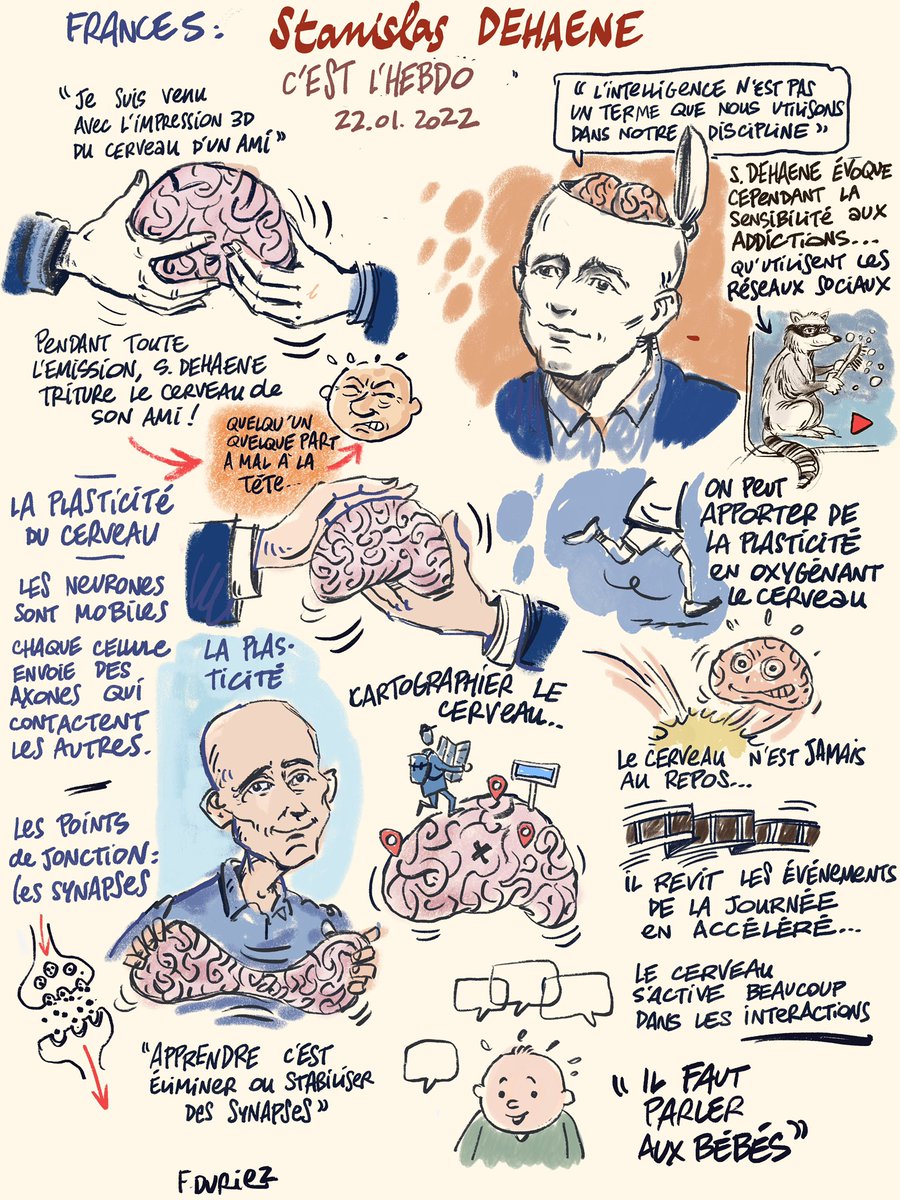 FRANCE 5 :
Stanislas DEHAENE
C'EST L'HEBDO
22.01.2022
"Je suis venu
avec l'impression 3D
du cerveau d'un ami"
"L'intelligence n'est pas
un terme que nous utilisons
dans notre discipline"
S. DEHAENE ÉVOQUE
CEPENDANT LA
SENSIBILITÉ AUX
ADDICTIONS...
QU'UTILISENT LES
RÉSEAUX SOCIAUX
PENDANT TOUTE
L'EMISSION, S. DEHAENE
TRITURE LE CERVEAU de
SON AMI !
QUELQU'UN
QUELQUE PART
A MAL À LA
TÊTE...
LA PLASTICITÉ
DU CERVEAU
LES NEURONES
SONT MOBILES
CHAQUE CELLULE
ENVOIE DES
AXONES QUI
CONTACTENT
LES AUTRES.
ON PEUT
APPORTER DE
LA PLASTICITÉ
EN OXYGÉNANT
LE CERVEAU
LA PLAS-
TICITÉ
CARTOGRAPHIER LE
CERVEAU..
LE CERVEAU N'EST JAMAIS
AU REPOS...
Les POINTS
de JONCTION :
les SYNAPSES
IL REVIT LES ÉVÉNEMENTS
DE LA JOURNÉE
EN ACCÉLÉRÉ...
LE CERVEAU
S'ACTIVE BEAUCOUP
DANS LES INTERACTIONS
"APPRENDRE C'EST
ÉLIMINER OU STABILISER
DES SYNAPSES"
"IL FAUT
PARLER
AUX BÉBÉS"
F. DURIEZ